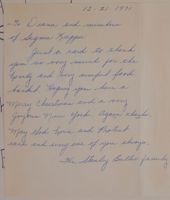 12-21-1971
To Diana and members
of Sigma Kappa
Just a card to thank
you so very much for the
lovely and very useful food
basket. Hoping you have a
Merry Christmas and a very
Joyous New York. Again thanks.
May God Love and Protect
each and every one of you always.
The Butler family